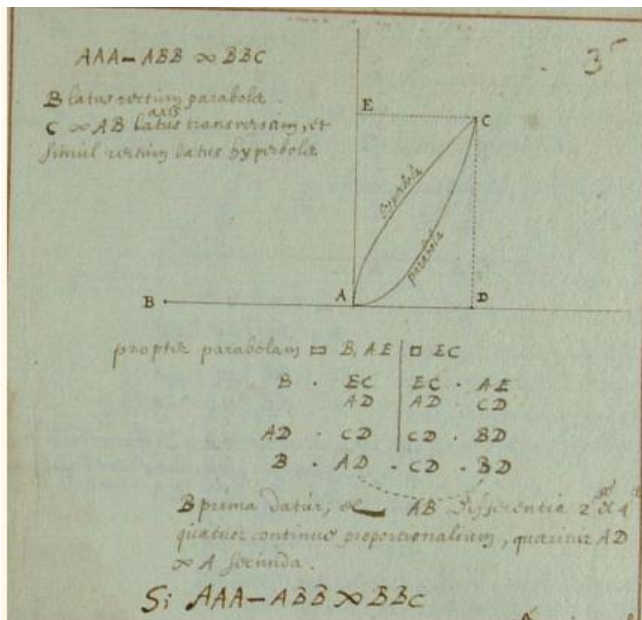 AAA - ABB ∞ BBC
3
B latus rectum parabolæ.
axis
C ∞ AB latus transversam, et
simul rectum latus hyperbolæ
E
C
hyperbola
parabola
B
A
D
propter parabolam □ B, AE | □ EC
B · EC | EC · AE
AD | AD · CD
AD · CD | CD · BD
B · AD · CD · BD
B prima datur, et AB Differentia 2æ & 4æ
quatuor continue proportionalium, quæritur AD
∞ A secunda.
Si AAA - ABB ∞ BBC